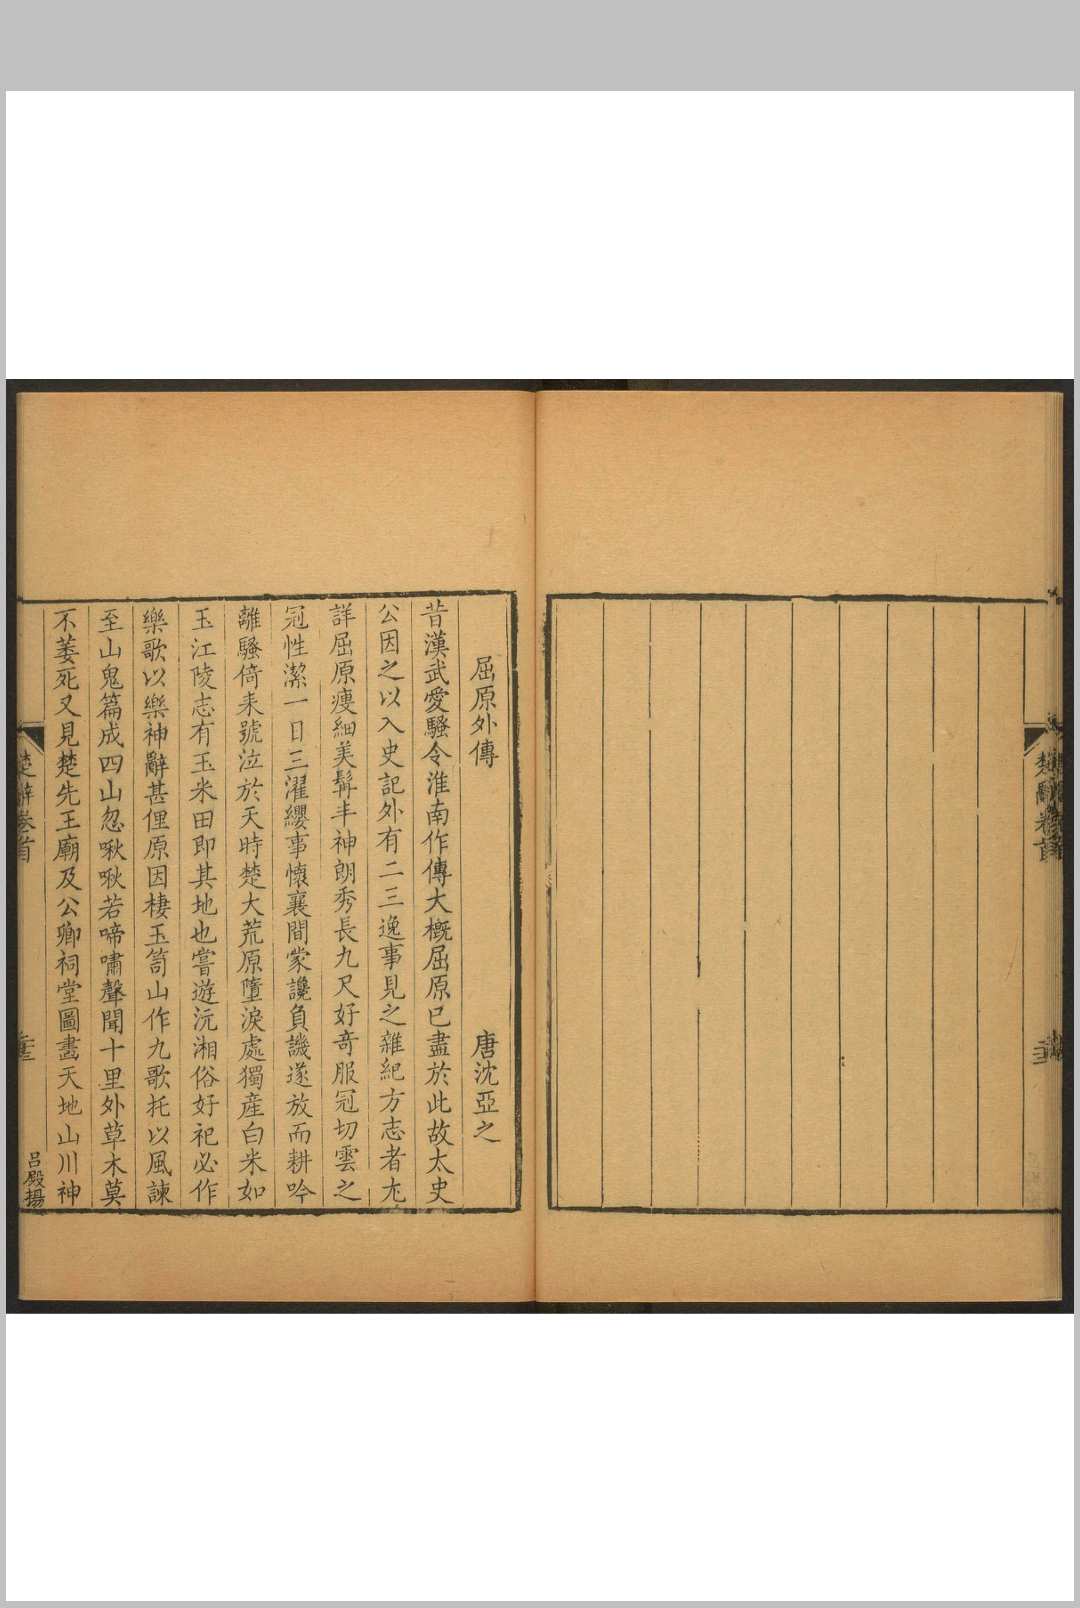 楚辭卷首
屈原外傳 唐沈亞之
昔漢武愛騷令淮南作傳大概屈原已盡於此故太史
公因之以入史記外有二三逸事見之雜紀方志者尢
詳屈原瘦細美髯丰神朗秀長九尺好奇服冠切雲之
冠性潔一日三濯纓事懷襄間蒙讒負譏遂放而耕吟
離騷倚耒號泣於天時楚大荒原墮淚處獨產白米如
玉江陵志有玉米田即其地也嘗遊沅湘俗好祀必作
樂歌以樂神辭甚俚原因棲玉笥山作九歌托以風諫
至山鬼篇成四山忽啾啾若啼嘯聲聞十里外草木莫
不萎死又見楚先王廟及公卿祠堂圖畫天地山川神
楚辭卷首
呂殿揚